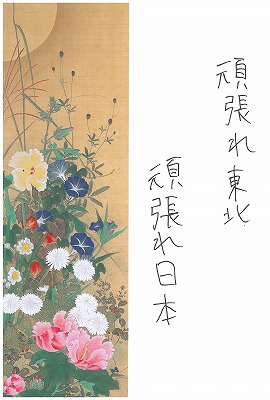 頑張れ東北
頑張れ日本